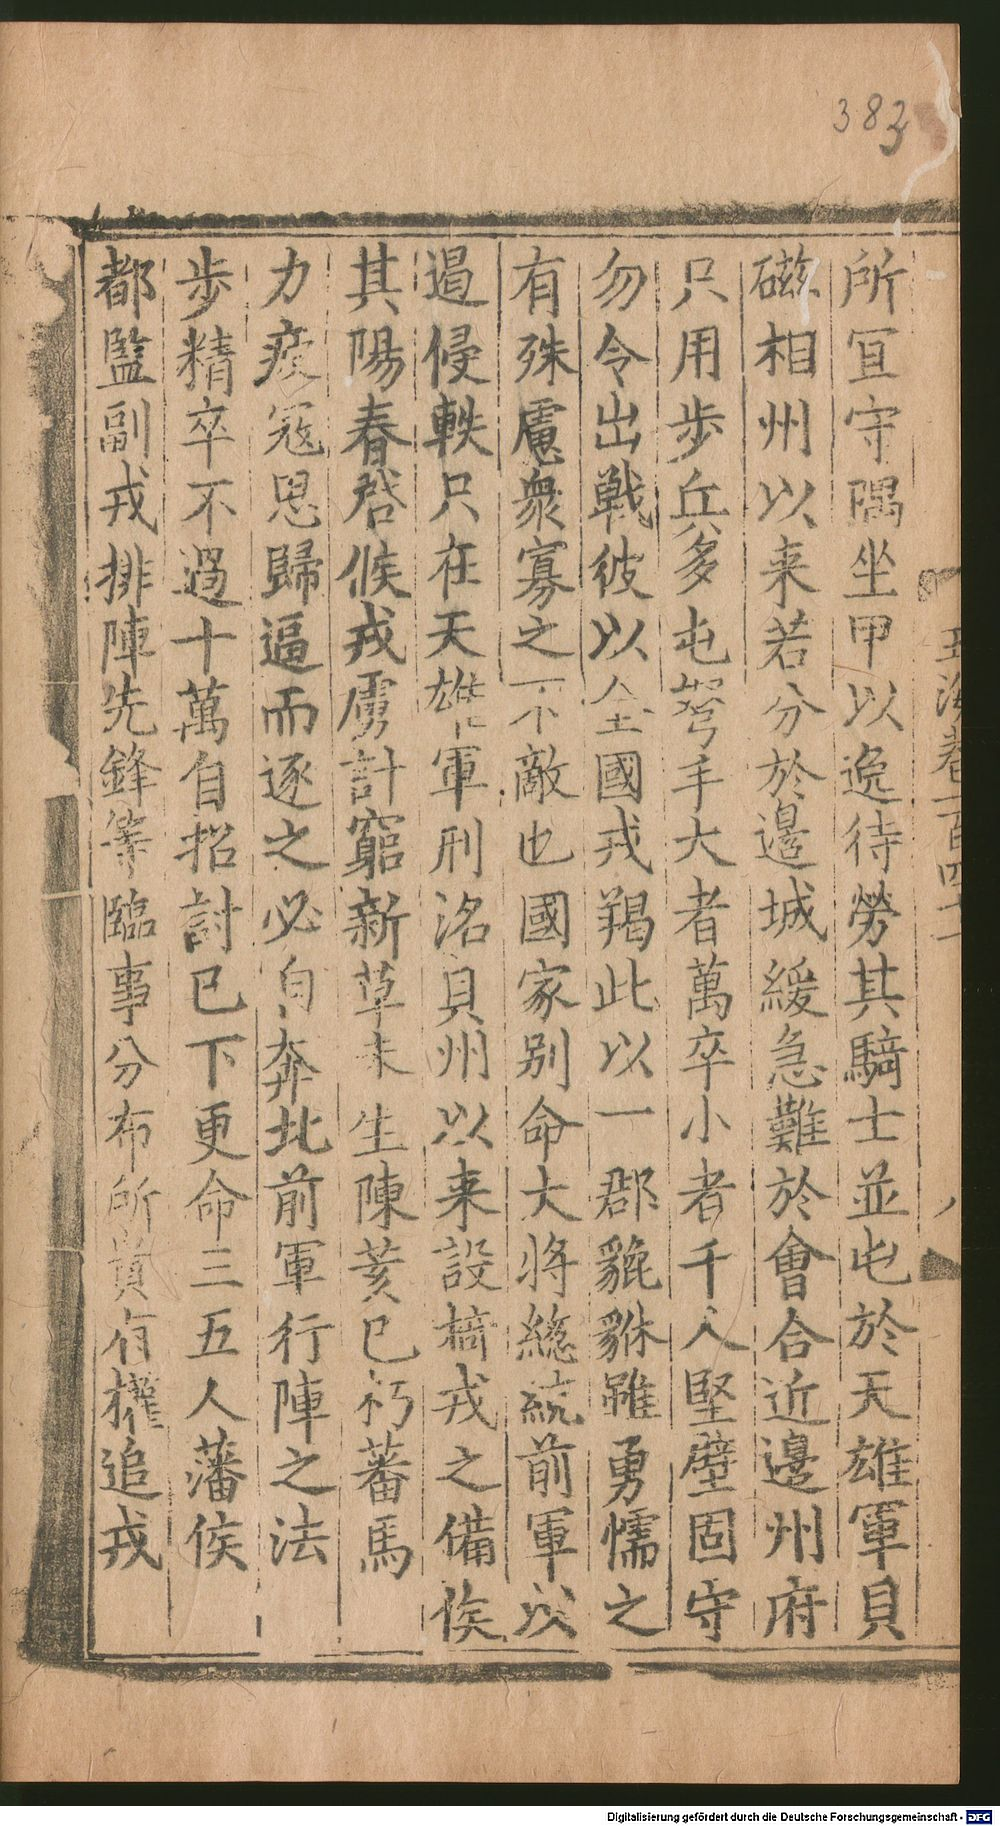 383
所宜守隅坐甲以逸待勞其騎士並屯於天雄軍貝
磁相州以来若分於邊城緩急難於會合近邊州府
只用步兵多屯弩手大者萬卒小者千人堅壁固守
勿令出戰彼以全國戎羯此以一郡貔貅雖勇懦之
有殊慮衆寡之不敵也國家别命大将緫統前軍以
遏侵軼只在天雄軍刑洺貝州以来設掎戎之備俟
其陽春啓候戎虜計窮新草未生陳荄已朽蕃馬
力疲寇思歸逼而逐之必自奔北前軍行陣之法
步精卒不過十萬自招討已下更命三五人藩侯
都監副戎排陣先鋒等臨事分布所貴有權追戎
玉海卷一百四十一
八
Digitalisierung gefördert durch die Deutsche Forschungsgemeinschaft - DFG